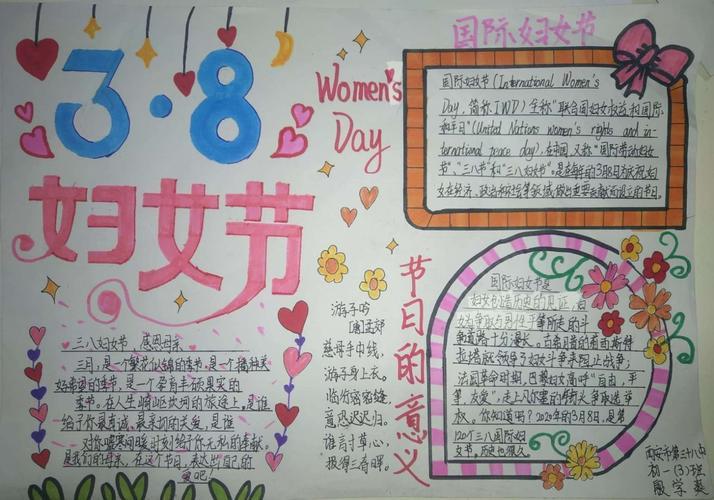 3·8
妇女节
Women's
Day
三八妇女节,感恩母亲
三月,是一个繁花似锦的季节,是一个播种美
好希望的季节,是一个孕育丰硕果实的
季节。在人生崎岖坎坷的旅途上,是谁
给予你最真诚、最亲切的关爱,是谁
对你嘘寒问暖,时刻给予你无私的奉献
是我们的母亲,在这个节日,表达出自己的
爱吧!
游子吟
[唐]孟郊
慈母手中线,
游子身上衣。
临行密密缝,
意恐迟迟归。
谁言寸草心,
报得三春晖。
国际妇女节
国际妇女节(International Women's
Day,简称IWD)全称"联合国妇女权益和国际
和平日"(United Nations women's rights and in-
ternational peace day),在中国又称"国际劳动妇女
节"、"三八节"和"三八妇女节"。是在每年的3月8日为庆祝妇
女在经济、政治和社会等领域做出重要贡献而设立的节日。
节日的意义
国际妇女节是
妇女创造历史的见证,妇
女为争取与男性平等所走的斗
争道路十分漫长。古希腊的
拉塔就领导了妇女斗争来阻止战争;
法国革命时期,巴黎妇女高呼"自由,平
等,友爱",走上凡尔赛的街头争取选举
权。你知道吗?2020年的3月8日,是第
120个三八国际妇
女节。历史也很久
西安市第三十八中
初一(3)班